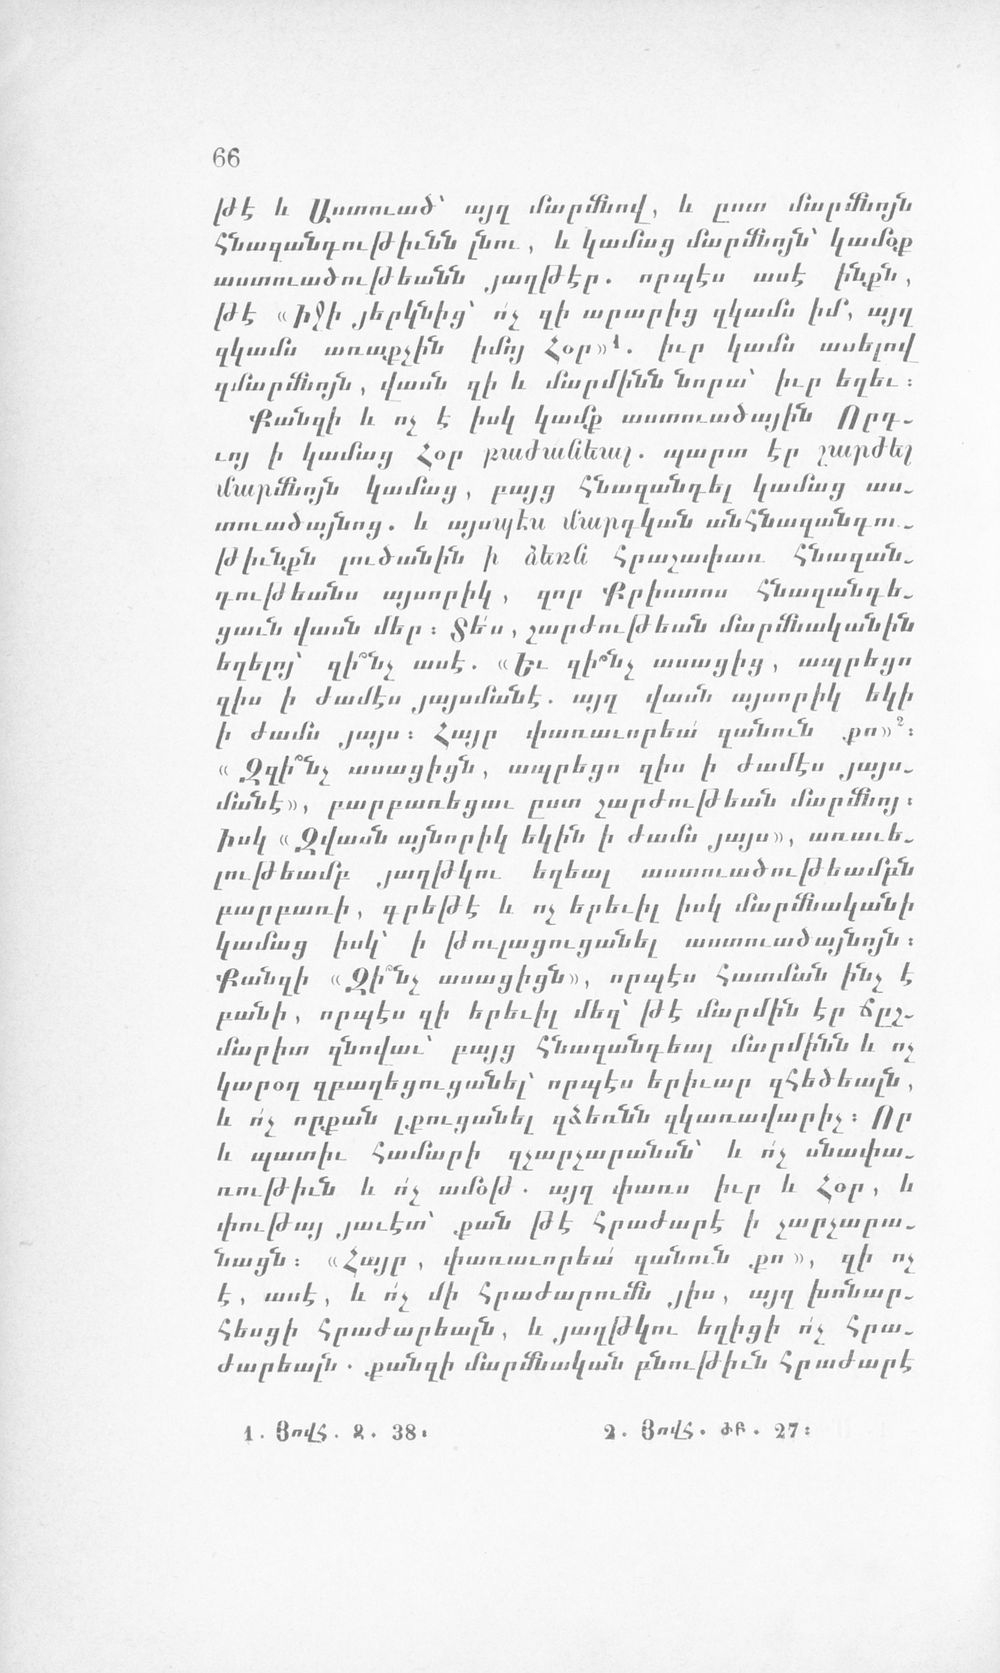 66
թէ և Աստուած՝ այղ մարմնով, և ըստ մարմնոյն
հնազանդութիւնն լնու, և կամաց մարմնոյն՝ կամօք
աստուածութեանն յաղթէր. որպէս ասէ ինքն,
թէ «Իջի յերկնից՝ ո՛չ զի արարից զկամս իմ՝, այղ
զկամս առաքչին իմոյ Հօր»¹. իւր կամս ասելով
զմարմնոյն, վասն զի և մարմինն նորա՝ իւր եղեւ:
Քանզի և ոչ է իսկ կամք աստուածային Որդ-
ւոյ ի կամաց Հօր բաժանեալ. պարտ էր շարժել
մարմնոյն կամաց, բայց հնազանդել կամաց աս-
տուածայնոց. և այսպէս մարդկան անհնազանդու-
թիւնքն լուծանին ի ձեռն հրաշափառ հնազան-
դութեանս այսորիկ, զոր Քրիստոս հնազանդե-
ցաւն վասն մեր: Տե՛ս, շարժութեան մարմնականին
եղելոյ՝ զի՞նչ ասէ. «Եւ զի՞նչ ասացից, ապրեցո
զիս ի ժամէս յայսմանէ. այղ վասն այսորիկ եկի
ի ժամս յայս: Հայր փառաւորեա՛ զանուն քո»²:
«Զզի՞նչ ասացիցն, ապրեցո զիս ի ժամէս յայս-
մանէ», բարբառեցաւ ըստ շարժութեան մարմնոյ:
Իսկ «Զվասն այնորիկ եկին ի ժամս յայս», առաւե-
լութեամբ յաղթկու եղեալ աստուածութեամբն
բարբառի, գրեթէ և ոչ երեւիլ իսկ մարմնականի
կամաց իսկ՝ ի թուլացուցանել աստուածայնոյն:
Քանզի «Զի՞նչ ասացիցն», որպէս հատման ինչ է
բանի, որպէս զի երեւիլ մեզ՝ թէ մարմին էր ճըշ-
մարիտ զնովաւ՝ բայց հնազանդեալ մարմինն և ոչ
կարօղ զբաղեցուցանել՝ որպէս երիւար զհեծեալն,
և ո՛չ որքան լքուցանել զձեռնն զկառավարիչ: Որ
և պատիւ համարի զչարչարանսն՝ և ո՛չ սնափա-
ռութիւն և ո՛չ ամօթ. այղ փառս իւր և Հօր, և
փութայ յաւէտ՝ քան թէ հրաժարէ ի չարչարա-
նացն: «Հայր, փառաւորեա՛ զանուն քո», զի ոչ
է, ասէ, և ո՛չ մի հրաժարումն յիս, այղ խոնար-
հեսցի հրաժարեալն, և յաղթկու եղիցի ո՛չ հրա-
ժարեալն. քանզի մարմնական բնութիւն հրաժարէ
1. Յովհ. Զ. 38:
2. Յովհ. ԺԲ. 27: